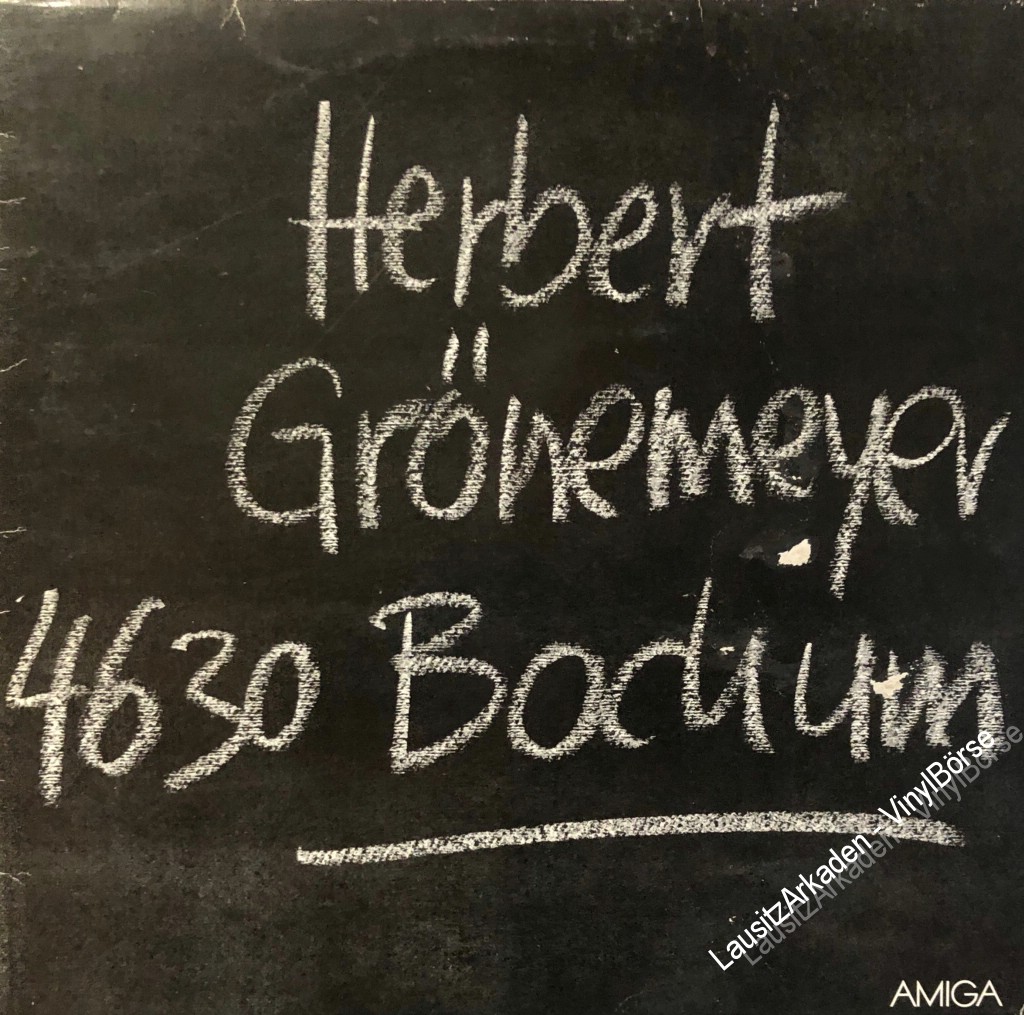 Herbert
Grönemeyer
4630 Bochum
LausitzArkaden - VinylBörse
AMIGA